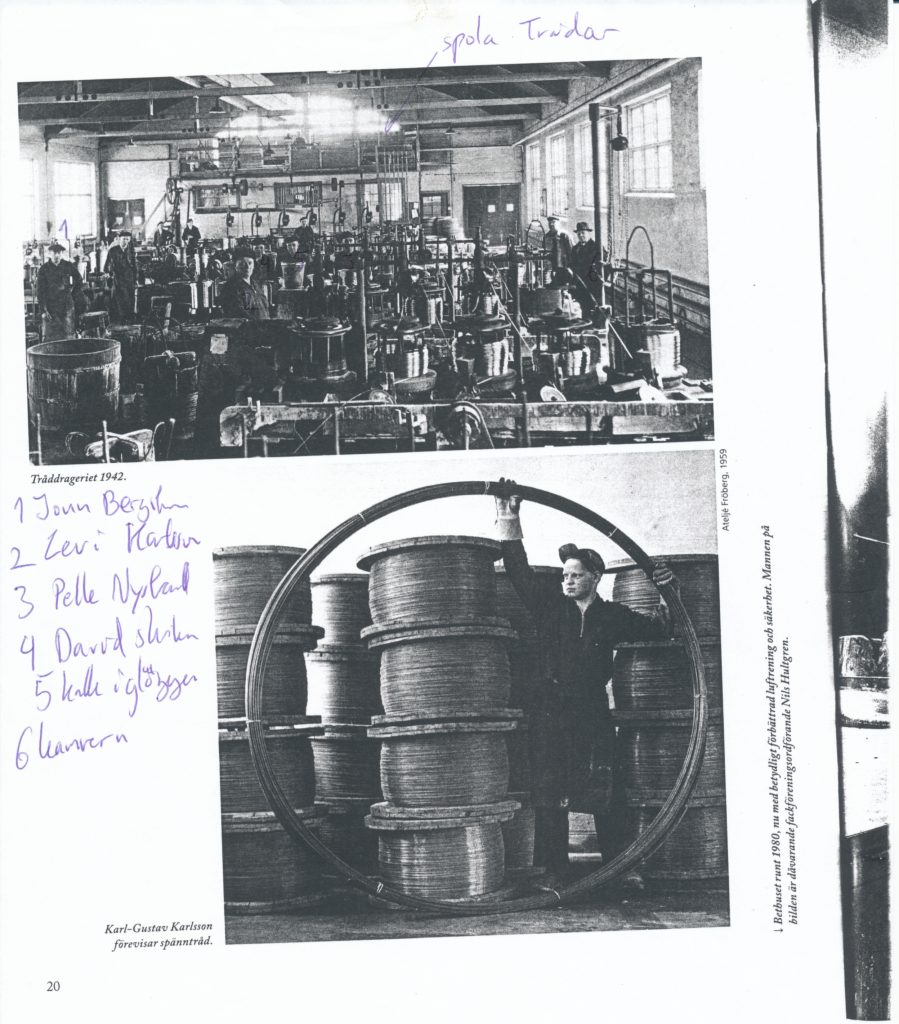 spola Trådar
1
Tråddrageriet 1942.
1 John
2 Levi Karlsson
3 Pelle
4 David
5 Kalle i
6
Ateljé Fröberg, 1959
↓ Bethuset runt 1980, nu med betydligt förbättrad luftrening och säkerhet. Mannen på
bilden är dåvarande fackföreningsordförande Nils Hultgren.
Karl-Gustav Karlsson
förevisar spänntråd.
20